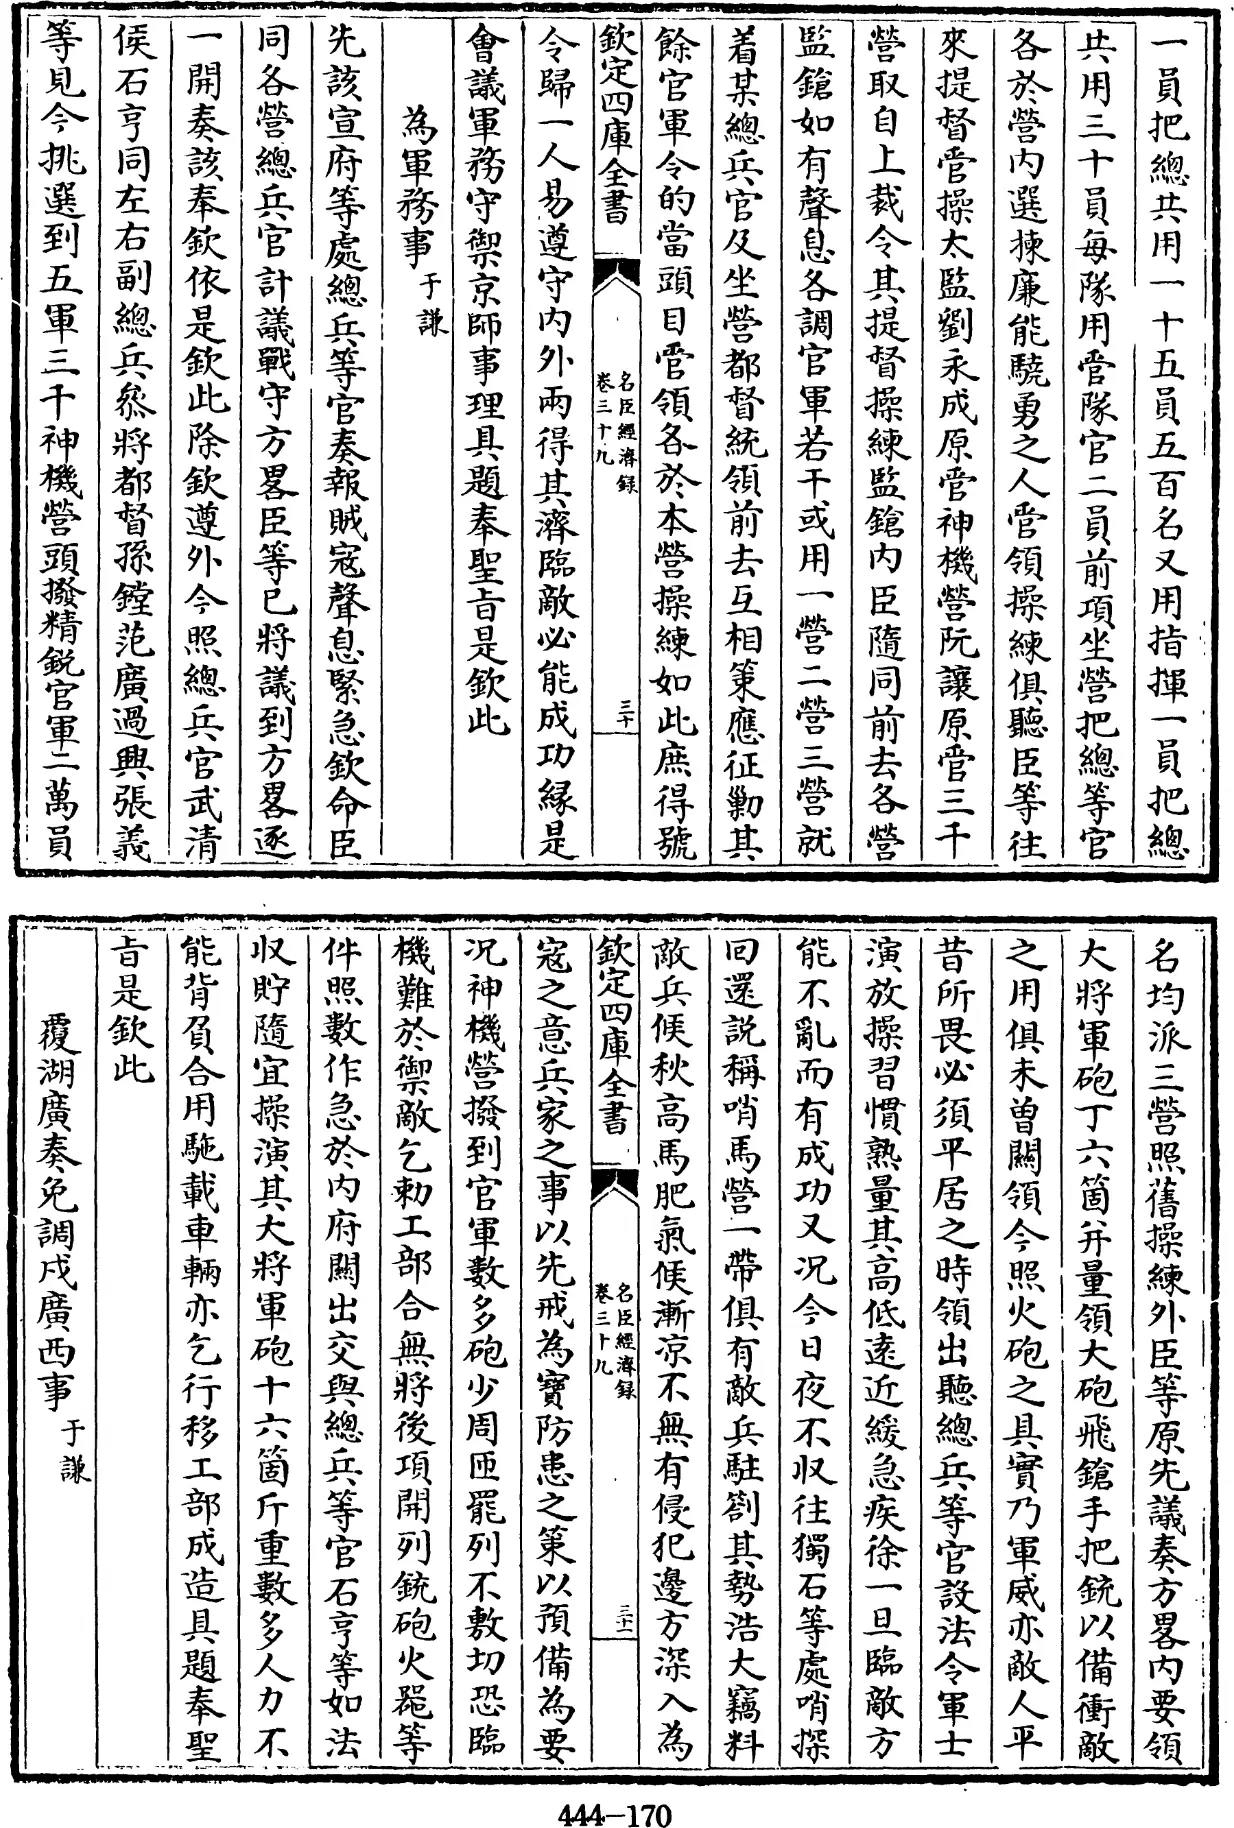 一員把總共用一十五員五百名又用指揮一員把總
共用三十員每隊用管隊官二員前項坐營把總等官
各於營内選揀廉能驍勇之人管領操練俱聽臣等往
來提督管操太監劉永成原管神機營阮讓原管三千
營取自上裁令其提督操練監鎗内臣隨同前去各營
監鎗如有聲息各調官軍若干或用一營二營三營就
着某總兵官及坐營都督統領前去互相策應征勦其
餘官軍令的當頭目管領各於本營操練如此庶得號
欽定四庫全書
名臣經濟録
卷三十九
三十
令歸一人易遵守内外兩得其濟臨敵必能成功縁是
會議軍務守禦京師事理具題奉聖旨是欽此
為軍務事 于謙
先該宣府等處總兵等官奏報賊冦聲息緊急欽命臣
同各營總兵官計議戰守方畧臣等已將議到方畧逐
一開奏該奉欽依是欽此除欽遵外今照總兵官武清
侯石亨同左右副總兵叅將都督孫鏜范廣過興張義
等見今挑選到五軍三千神機營頭撥精鋭官軍二萬員
名均派三營照舊操練外臣等原先議奏方畧内要領
大將軍砲丁六箇并量領大砲飛鎗手把銃以備衝敵
之用俱未曾關領今照火砲之具實乃軍威亦敵人平
昔所畏必須平居之時領出聽總兵等官設法令軍士
演放操習慣熟量其高低逺近緩急疾徐一旦臨敵方
能不亂而有成功又况今日夜不収往獨石等處哨探
回還説稱哨馬營一帶俱有敵兵駐劄其勢浩大竊料
敵兵候秋高馬肥氣候漸凉不無有侵犯邊方深入為
欽定四庫全書
名臣經濟録
卷三十九
三十一
冦之意兵家之事以先戒為寶防患之策以預備為要
况神機營撥到官軍數多砲少周匝罷列不敷切恐臨
機難於禦敵乞勅工部合無將後項開列銃砲火噐等
件照數作急於内府關出交與總兵等官石亨等如法
収貯隨宜操演其大將軍砲十六箇斤重數多人力不
能背負合用駞載車輛亦乞行移工部成造具題奉聖
旨是欽此
覆湖廣奏免調戍廣西事 于謙
444-170